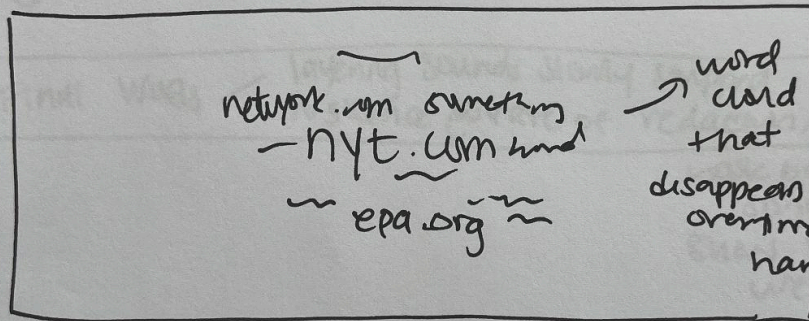 network.com something
nyt.com
epa.org
word
cloud
that
disappears
overtim
nar